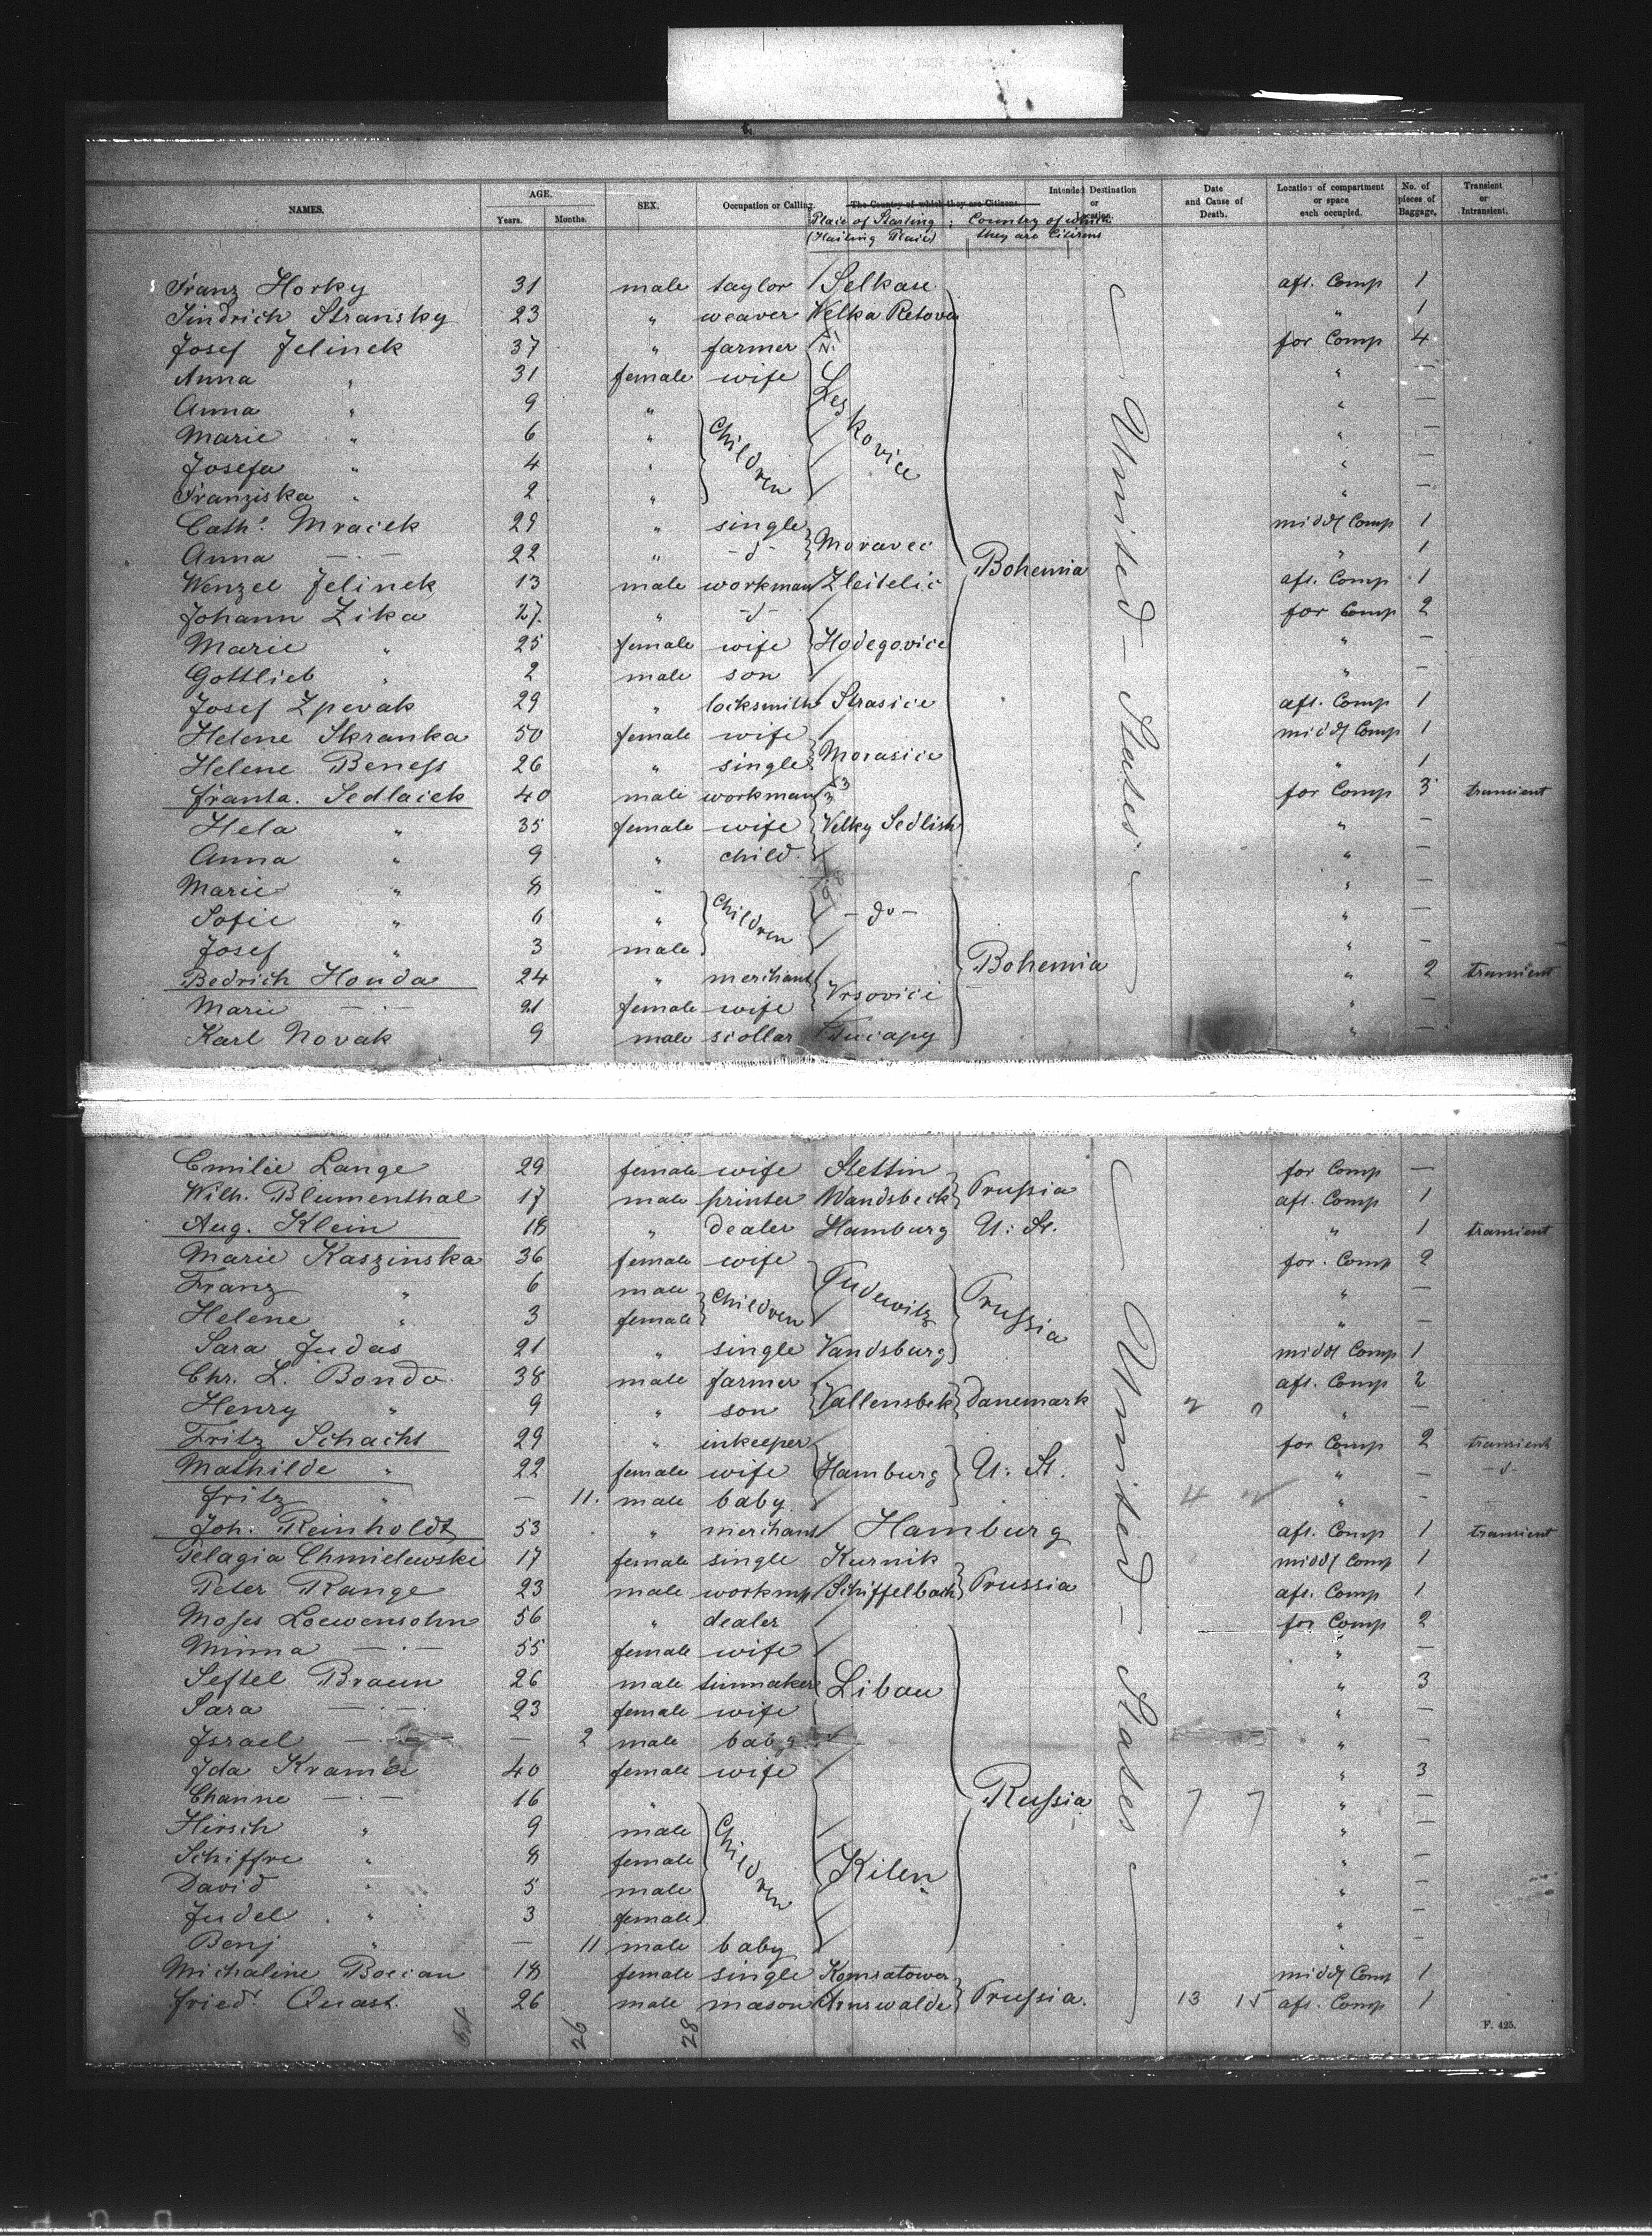 NAMES. AGE. Years. Months. SEX. Occupation or Calling. The Country of which they are Citizens. Intended Destination or Location. Date and Cause of Death. Location of compartment or space each occupied. No. of pieces of Baggage. Transient or Intransient.
Place of Starting (Hailing Place) ; Country of which they are Citizens
Franz Horky 31 male taylor Selkau aft. Comp 1
Jindrich Stransky 23 " weaver Velka Retova " 1
Josef Jelinek 37 " farmer for Comp 4
Anna " 31 female wife Leskovice " —
Anna " 9 " " —
Marie " 6 " Children " —
Josefa " 4 " " —
Franziska " 2 " " —
Cath. Mracek 29 " single Moravec middl Comp 1
Anna — · — 22 " -d- " 1
Bohemia
Wenzel Jelinek 13 male workman Zleitelic aft. Comp 1
Johann Zika 27. " -d- for Comp 2
Marie " 25 female wife Hodegovice " —
Gottlieb " 2 male son " —
Josef Zpevak 29 " locksmith Strasice aft. Comp 1
Helene Skranka 50 female wife middl Comp 1
Helene Beness 26 " single Morasice " 1
Franta. Sedlacek 40 male workman for Comp 3 transient
Hela " 35 female wife Velky Sedlish " —
Anna " 9 " child " —
Marie " 8 " " —
Sofie " 6 " Children — do — " —
Josef " 3 male " —
Bedrich Honda 24 " merchant Bohemia " 2 transient
Marie — · — 21 female wife Vrsovici " —
Karl Novak 9 male scollar Tucapy " —
United - States
Emilie Lange 29 female wife Stettin for Comp —
Wilh. Blumenthal 17 male printer Wandsbeck Prussia aft. Comp 1
Aug. Klein 18 " dealer Hamburg U: St. " 1 transient
Marie Kaszinska 36 female wife for. Comp 2
Franz " 6 male Children Pudewitz Prussia " —
Helene " 3 female " —
Sara Judas 21 " single Vandsburg middl Comp 1
Chr. L. Bondo 38 male farmer aft. Comp 2
Henry " 9 " son Vallensbek Danemark " —
Fritz Schacht 29 " inkeeper for Comp 2 transient
Mathilde " 22 female wife Hamburg U: St. " — -d-
Fritz " — 11. male baby " —
Joh. Reinholdt 53 " merchant Hamburg aft. Comp 1 transient
Pelagia Chmielewski 17 female single Kurnik middl Comp 1
Peter Range 23 male workmn Schiffelbach Prussia aft. Comp 1
Moses Loewensohn 56 " dealer for Comp 2
Minna — · — 55 female wife " —
Seftel Braun 26 male tinmaker Libau " 3
Sara — · — 23 female wife " —
Israel — · — — 2 male baby " —
Ida Kramer 40 female wife " 3
Channe — · — 16 " Russia 7 7 " —
Hirsch " 9 male " —
Schiffre " 8 female Children Kilen " —
David " 5 male " —
Judel " 3 female " —
Benj " — 11 male baby " —
Michaline Boccan 18 female single middl Comp 1
Fried. Quast. 26 male mason Arnswalde Prussia. 13 15 aft. Comp 1
United - States
54 26 28
F. 425.